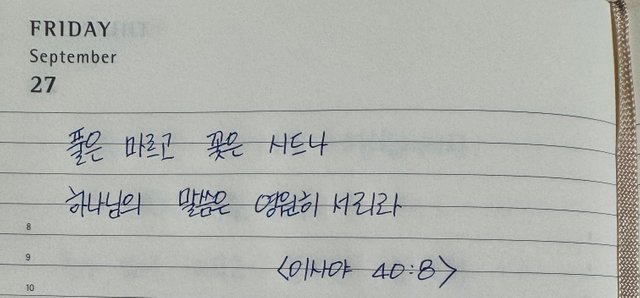 FRIDAY
September
27
풀은 마르고 꽃은 시드나
하나님의 말씀은 영원히 서리라
8
9
<이사야 40:8>
10